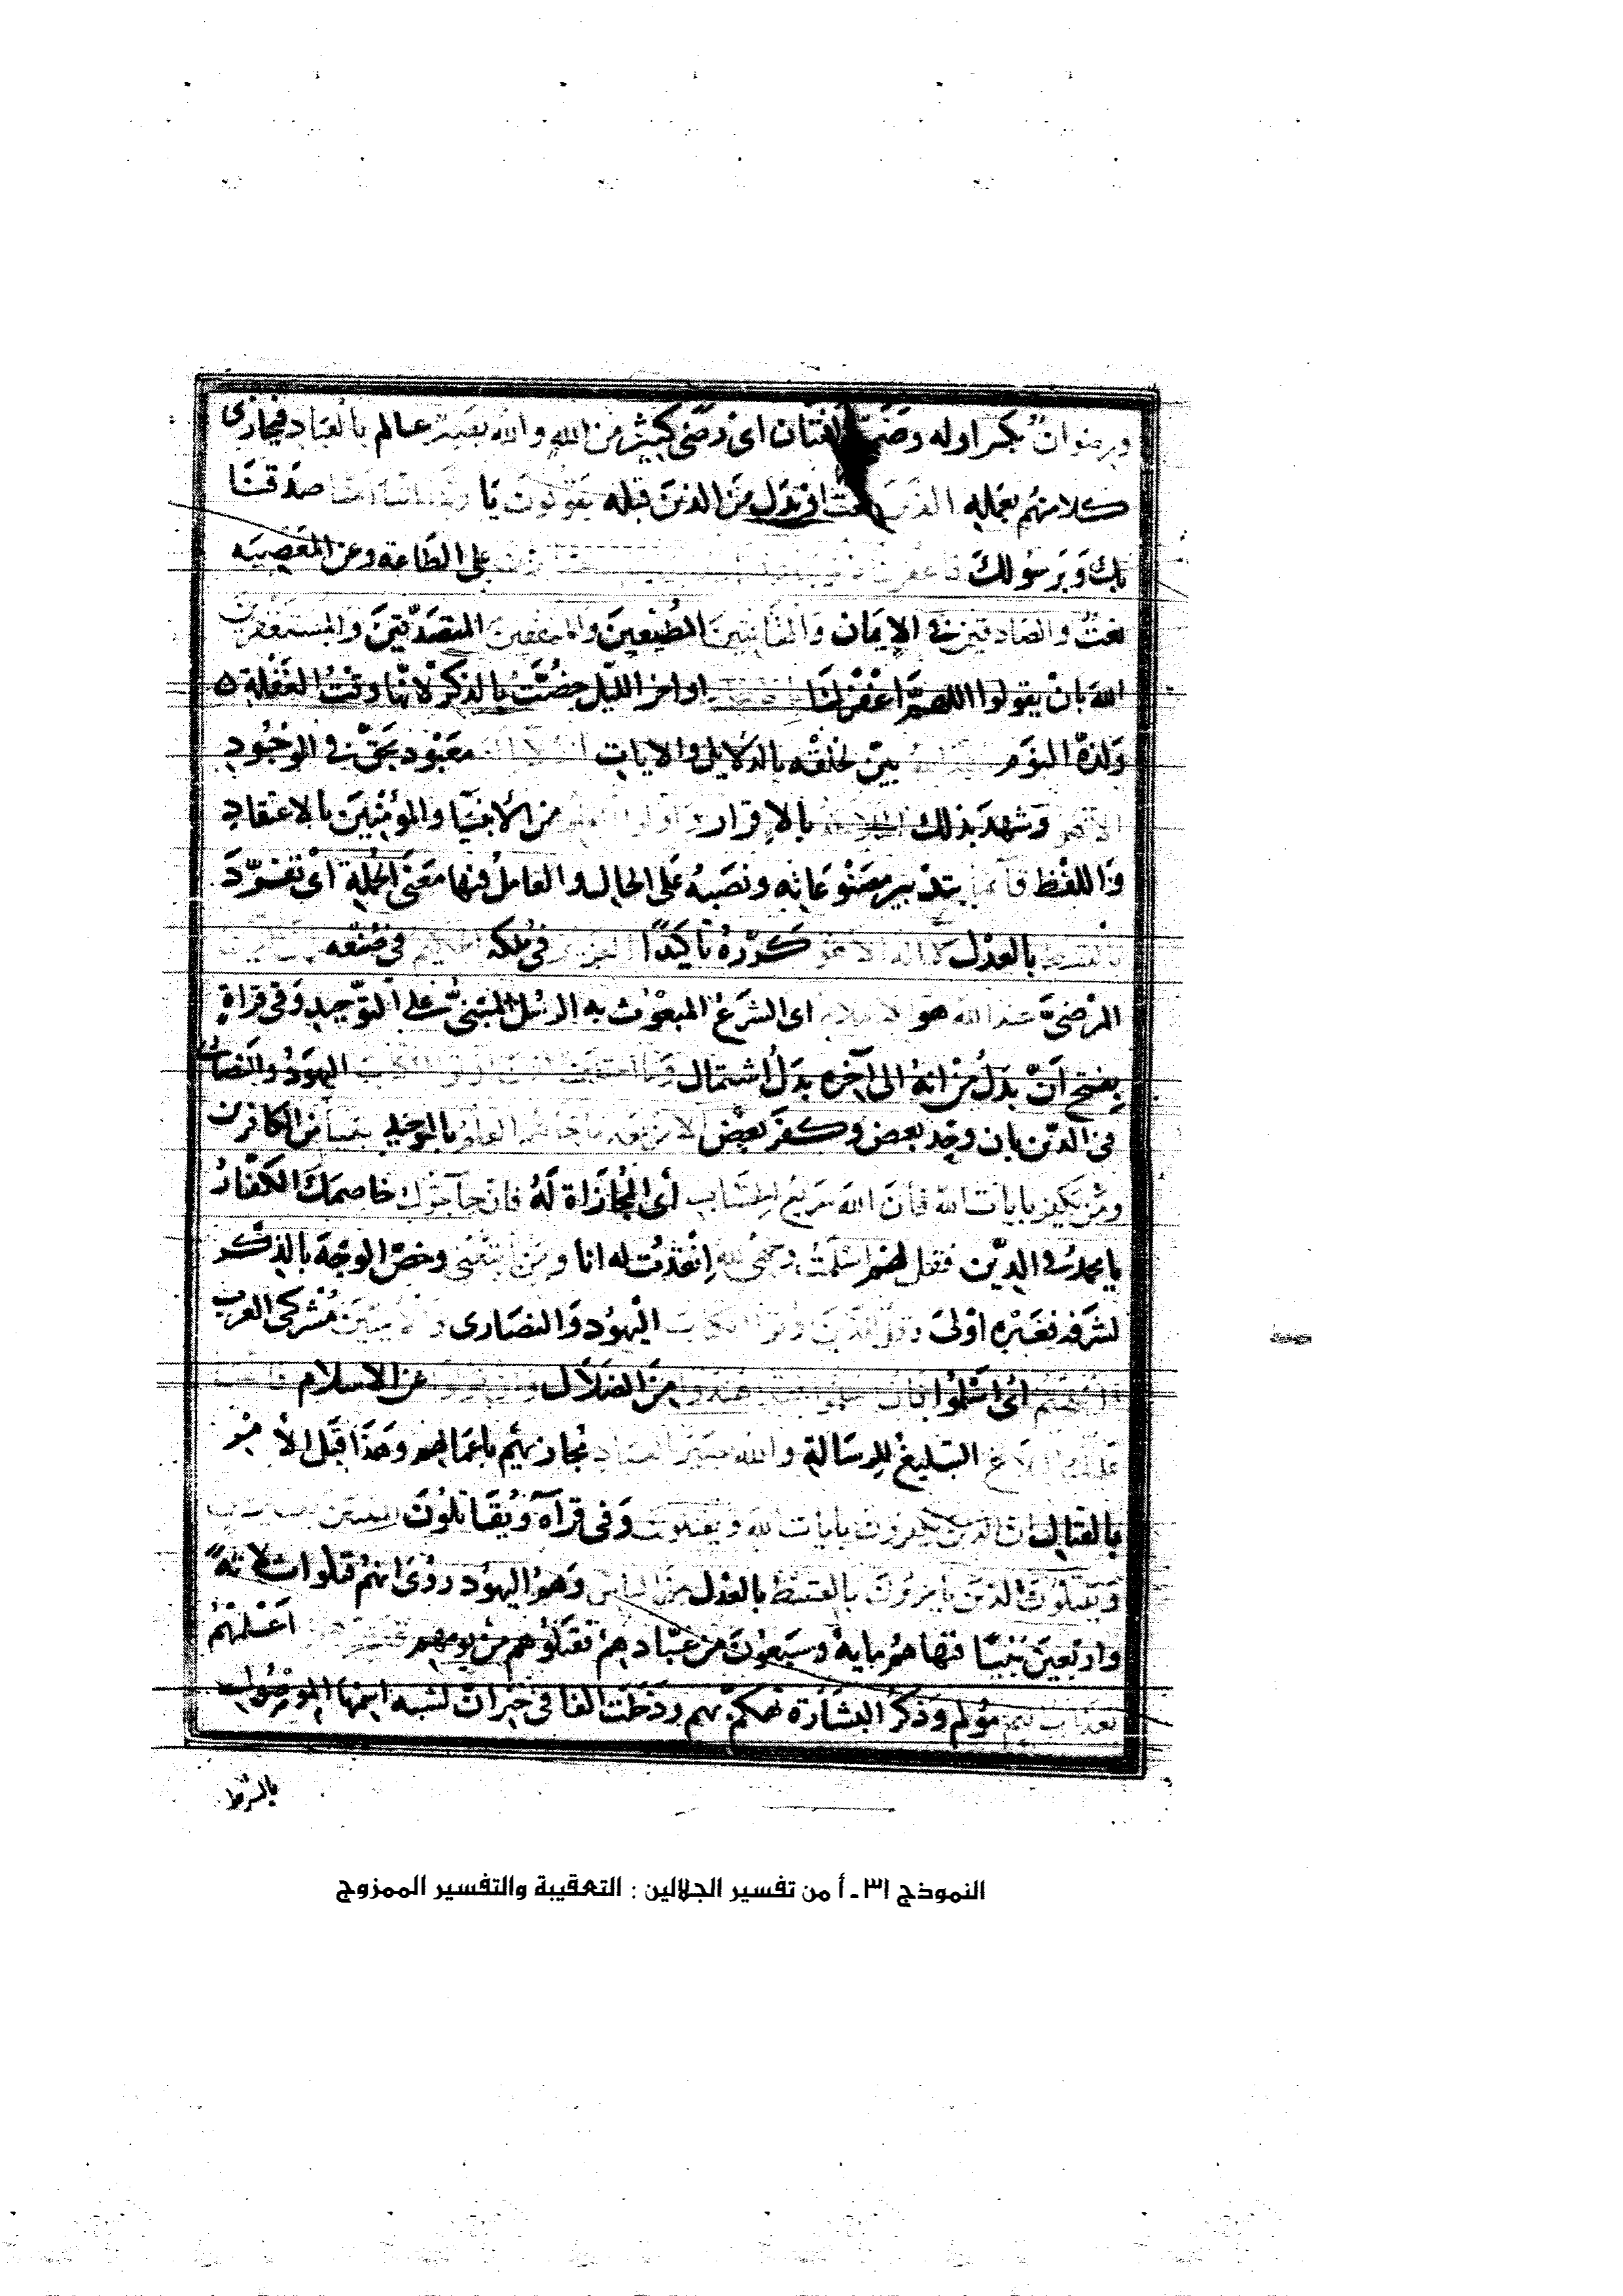 ورضوان بكسر اوله وضمه لغتان اى رضى كثير من الله والله بصير عالم بالعباد فيجازى
كلا منهم بعمله الذين نعت او بدل من الذين قبله يقولون يا ربنا اننا امنا صدقنا
بك وبرسولك فاغفر لنا على الطاعة وعن المعصية
نعت والصادقين فى الايمان والقانتين المطيعين والمنفقين المتصدقين والمستغفرين
الله بان يقولوا اللهم اغفر لنا اواخر الليل خصت بالذكر لانها وقت الغفلة
ولذة النوم بين لخلقه بالدلايل والايات معبود بحق فى الوجود
الا هو وشهد بذلك الملائكة بالاقرار واولوا العلم من الانبيا والمومنين بالاعتقاد
واللفظ قائما بتدبير مصنوعاته ونصبه على الحال والعامل فيها معنى الجملة اى تفرد
بالقسط بالعدل لا اله الا هو كرره تاكيدا العزيز فى ملكه الحكيم فى صنعه
المرضى عند الله هو الاسلام اى الشرع المبعوث به الرسل المبنى على التوحيد وفى قراة
بفتح ان بدل من انه الى آخره بدل اشتمال وما اختلف الذين اوتوا الكتاب اليهود والنصارى
فى الدين بان وحد بعض وكفر بعض الا من بعد ما جاءهم العلم بالتوحيد بغيا من الكافرين
ومن يكفر بايات الله فان الله سريع الحساب اى المجازاة له فان حاجوك خاصمك الكفار
يا محمد فى الدين فقل لهم اسلمت وجهى لله انقدت له انا ومن اتبعنى وخص الوجه بالذكر
لشرفه فغيره اولى وقل للذين اوتوا الكتاب اليهود والنصارى والاميين مشركى العرب
ااسلمتم اى اسلموا فان اسلموا فقد اهتدوا من الضلال وان تولوا عن الاسلام فانما
عليك البلاغ التبليغ للرسالة والله بصير بالعباد فيجازيهم باعمالهم وهذا قبل الامر
بالقتال ان الذين يكفرون بايات الله ويقتلون وفى قرآة ويقاتلون النبيين بغير حق
ويقتلون الذين يامرون بالقسط بالعدل من الناس وهم اليهود روى انهم قتلوا ثلاثة
واربعين نبيا فنهاهم ماية وسبعون من عبادهم فقتلوهم من يومهم فبشرهم اعلمهم
بعذاب اليم مولم وذكر البشارة تهكم بهم ودخلت الفا فى خبر ان لشبه اسمها الموصول
بالشرط
النموذج ٣١ ـ أ من تفسير الجلالين : التعقيبة والتفسير الممزوج